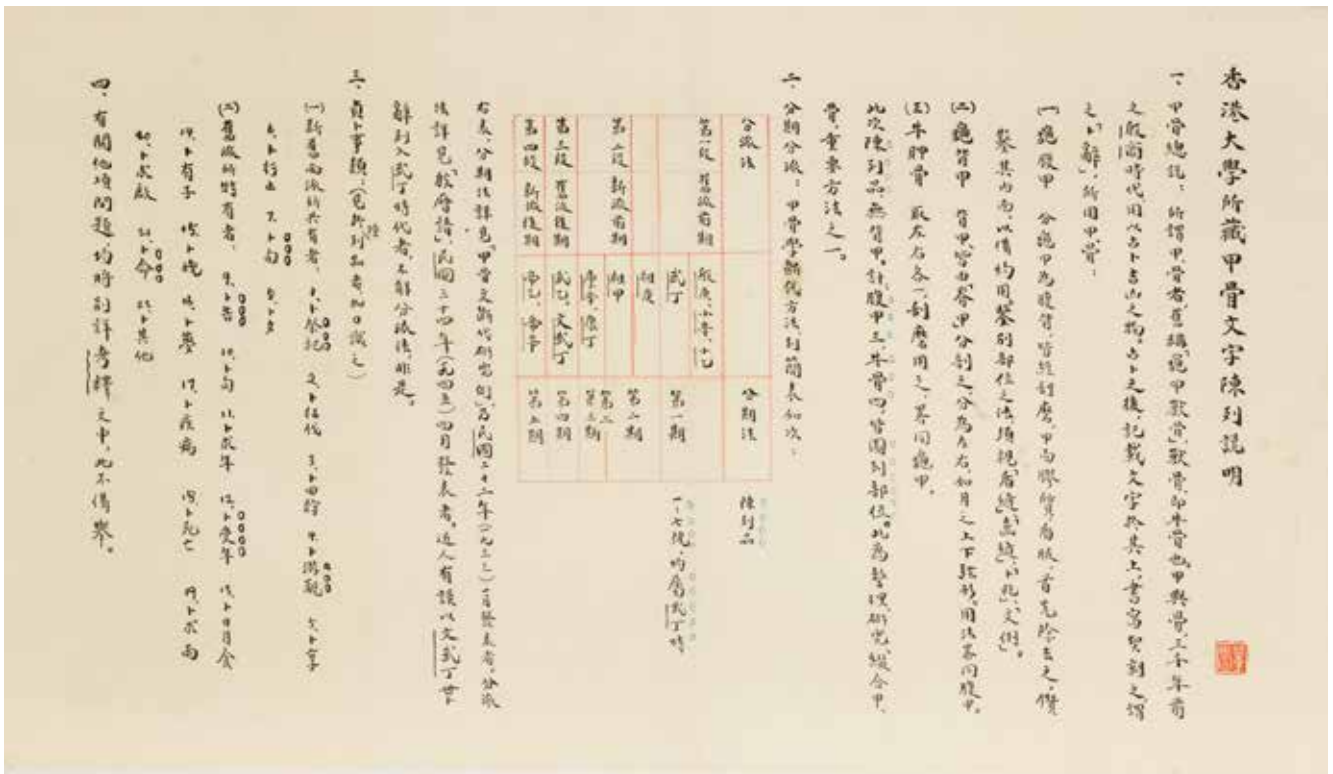 香港大學所藏甲骨文字陳列說明
一、甲骨總說：所謂甲骨者，舊稱「龜甲獸骨」，獸骨即牛骨也。甲與骨，三千年前
之殷商時代用以占卜吉凶之物，占卜之後，記載文字於其上，書寫契刻之謂
之「卜辭」，所用甲骨：
(一)龜腹甲 分龜甲為腹背，皆經刮磨，甲面膠質為版，首先除去之，鑽
鑿其內面，以備灼用。鑒別部位之法，須視「盾縫」「齒縫」「卜兆」「文例」。
(二)龜背甲 背甲，皆由「脊甲」分剖之，分為左右，如月之上下弦形，用法畧同腹甲。
(三)牛胛骨 取左右各一，刮磨用之，畧同龜甲。
此次陳列品，無背甲。計，腹甲三，牛骨四，皆圖列部位。此為整理研究綴合甲
骨，重要方法之一。
二、分期分派：甲骨學斷代方法，列簡表如次：
分派法 分期法 陳列品
第一段 舊派前期 般庚、小辛、小乙
武丁 第一期 一、七號，均屬武丁時
第二段 新派前期 祖庚
祖甲 第二期
廩辛、康丁 第三期
第三段 舊派後期 武乙、文武丁 第四期
第四段 新派後期 帝乙、帝辛 第五期
右表，分期法詳見「甲骨文斷代研究例」，為民國二十二年(一九三三)一月發表者。分派
法詳見「殷曆譜」，民國三十四年(一九四五)四月發表者。近人有誤以文武丁世卜
辭列入武丁時代者，不解分派法，非是。
三、貞卜事類(見於陳列品者，加○識之)
(一)新舊兩派所共有者， 1、卜祭祀 2、卜征伐 3、卜田狩 4、卜游觀 5、卜享
6、卜行止 7、卜旬 8、卜夕
(二)舊派所特有者， 9、卜告 10、卜匄 11、卜求年 12、卜受年 13、卜日月食
14、卜有子 15、卜娩 16、卜夢 17、卜疾病 18、卜死亡 19、卜求雨
20、卜求啟 21、卜令 22、卜其他
四、有關他項問題，均時別詳考釋文中，此不備舉。